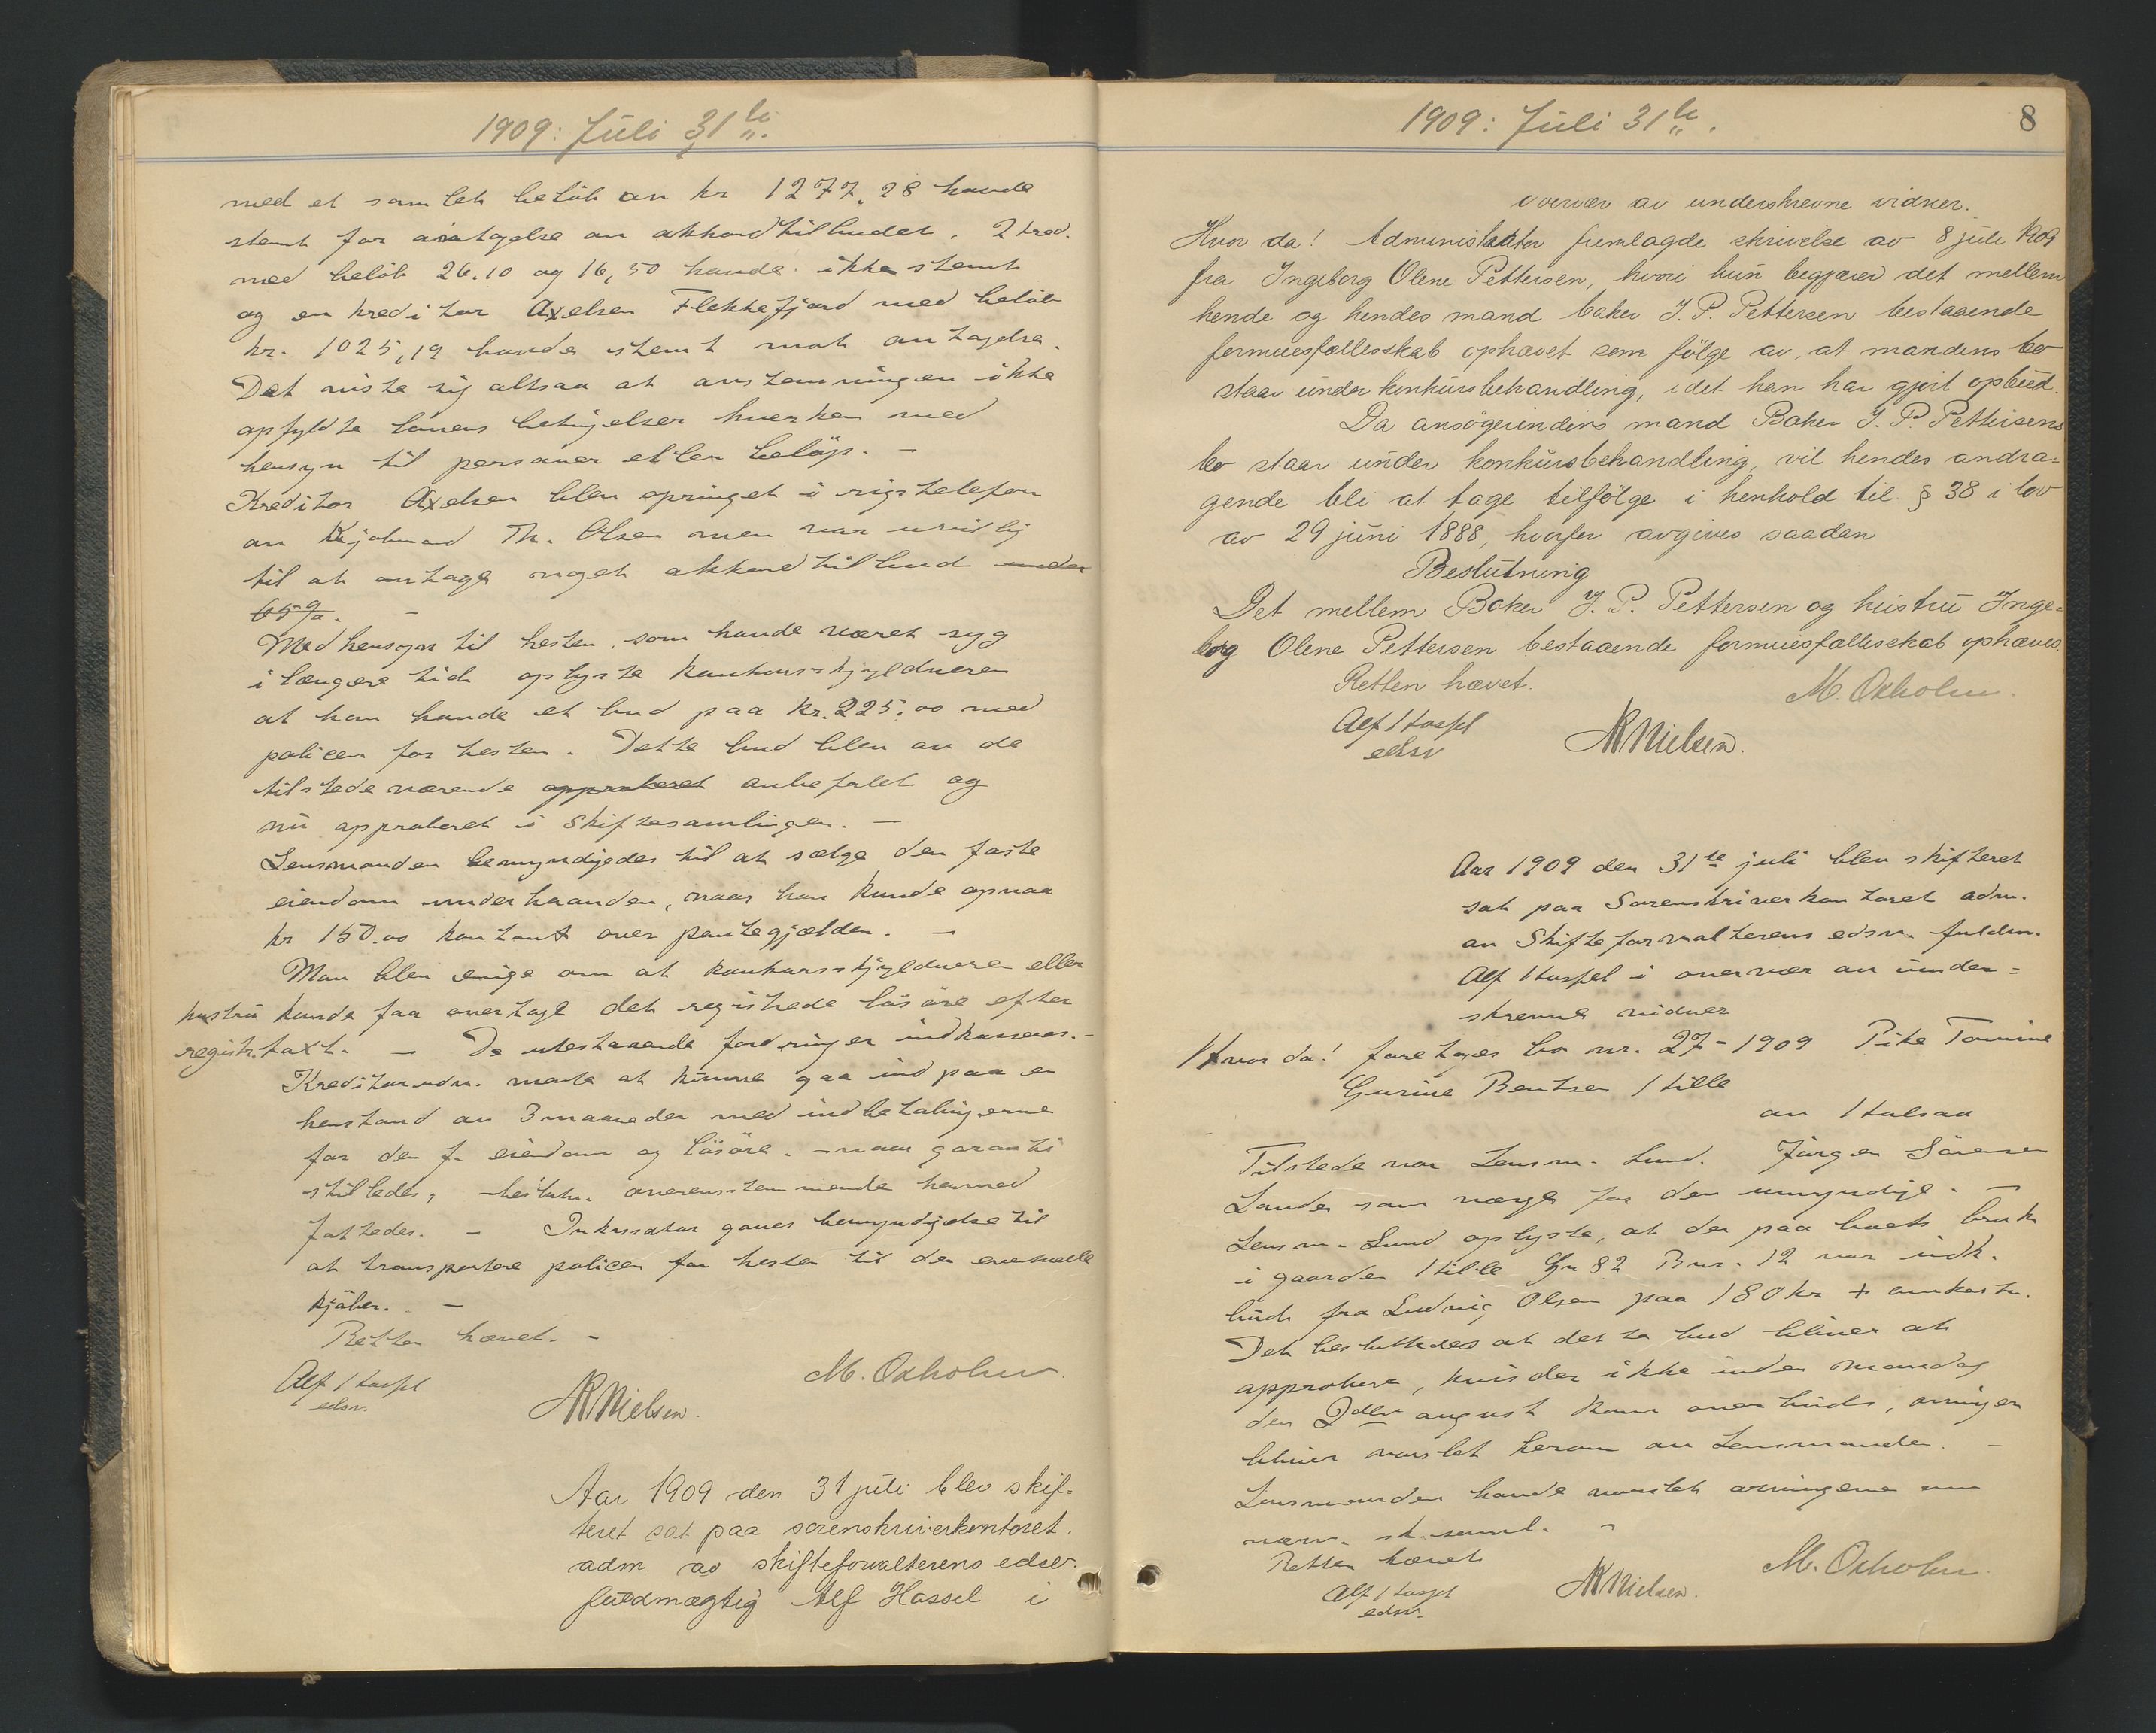 1909: Juli 31te
med et samlet beløb av kr 1277,28 havde
stemt for antagelse av akkordtilbudet. 2 kred.
med beløb 26.10 og 16,50 havde ikke stemt
og en kreditor Axelsen Flekkefjord med beløb
kr. 1025,19 havde stemt mot antagelse.
Det viste sig altsaa at avstemningen ikke
opfyldte lovens betingelser hverken med
hensyn til personer eller beløp. –
Kreditor Axelsen blev opringet i rigstelefon
av Kjøbmand Th. Olsen men var uvillig
til at antage noget akkordtilbud under
65%. –
Med hensyn til hesten, som havde været syg
i længere tid oplyste konkursskyldneren
at han havde et bud paa kr. 225.00 med
policen for hesten. Dette bud blev av de
tilstedeværende approberet anbefalet og
nu approberet i Skiftesamlingen. –
Lensmanden bemyndigedes til at sælge den faste
eiendom underhaanden, naar han kunde opnaa
kr 150.00 kontant over pantegjælden. –
Man blev enige om at konkursskyldneren eller
hustru kunde faa overtage det registrerede løsøre efter
registr.taxt. – De utestaaende fordringer indkasseres. –
Kreditorudv. mente at kunne gaa ind paa en
henstand av 3 maaneder med indbetalingerne
for den f. eiendom og løsøre. – naar garanti
stilledes, – beslutn. overensstemmende hermed
fattedes. – Inkassator gaves bemyndigelse til
at transportere policen for hesten til den eventuelle
kjøber. –
Retten hævet. –
M. Oxholm.
Alf Hassel
edsv.
NNielsen.
Aar 1909 den 31 juli blev skif-
teret sat paa sorenskriverkontoret.
adm. av skifteforvalterens edsv.
fuldmægtig Alf Hassel i
1909: Juli 31te.
8
overvær av underskrevne vidner.
Hvor da! Administrator fremlagde skrivelse av 8 juli 1909
fra Ingeborg Olene Pettersen, hvori hun begjærer det mellem
hende og hendes mand baker J. P. Pettersen bestaaende
formuesfællesskab ophævet som følge av, at mandens bo
staar under konkursbehandling, idet han har gjort opbud.
Da ansøgerindens mand Baker J. P. Pettersens
bo staar under konkursbehandling, vil hendes andra-
gende bli at tage tilfølge i henhold til § 38 i lov
av 29 juni 1888, hvorfor avgives saadan
Beslutning
Det mellem Baker J. P. Pettersen og hustru Inge-
borg Olene Pettersen bestaaende formuesfællesskab ophæves.
Retten hævet.
M. Oxholm.
Alf Hassel
edsv
NNielsen.
Aar 1909 den 31te juli blev skifteret
sat paa Sorenskriverkontoret adm.
av Skifteforvalterens edsv. fuldm.
Alf Hassel i overvær av under-
skrevne vidner
Hvor da! foretages bo nr. 27 – 1909 Pike Tomine
Gurine Bentsen Hille
av Halsaa
Tilstede var Lensm. Lund. Jørgen Sørensen
Lande som værge for den umyndige. –
Lensm. Lund oplyste, at der paa boets bruk
i gaarden Hille Gn 82 Bnr. 12 var indk.
bud fra Ludvig Olsen paa 180 kr + omkostn.
Det besluttedes at dette bud bliver at
approbere, hvis der ikke inden mandag
den 2den august kom overbud, arvingen
bliver varslet herom av Lensmanden. –
Lensmanden havde varslet arvingerne om
nærv. sk.saml. –
Retten hævet
M. Oxholm.
Alf Hassel
edsv.
NNielsen.